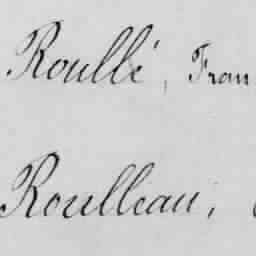 Roullé, Fran
Roulleau,